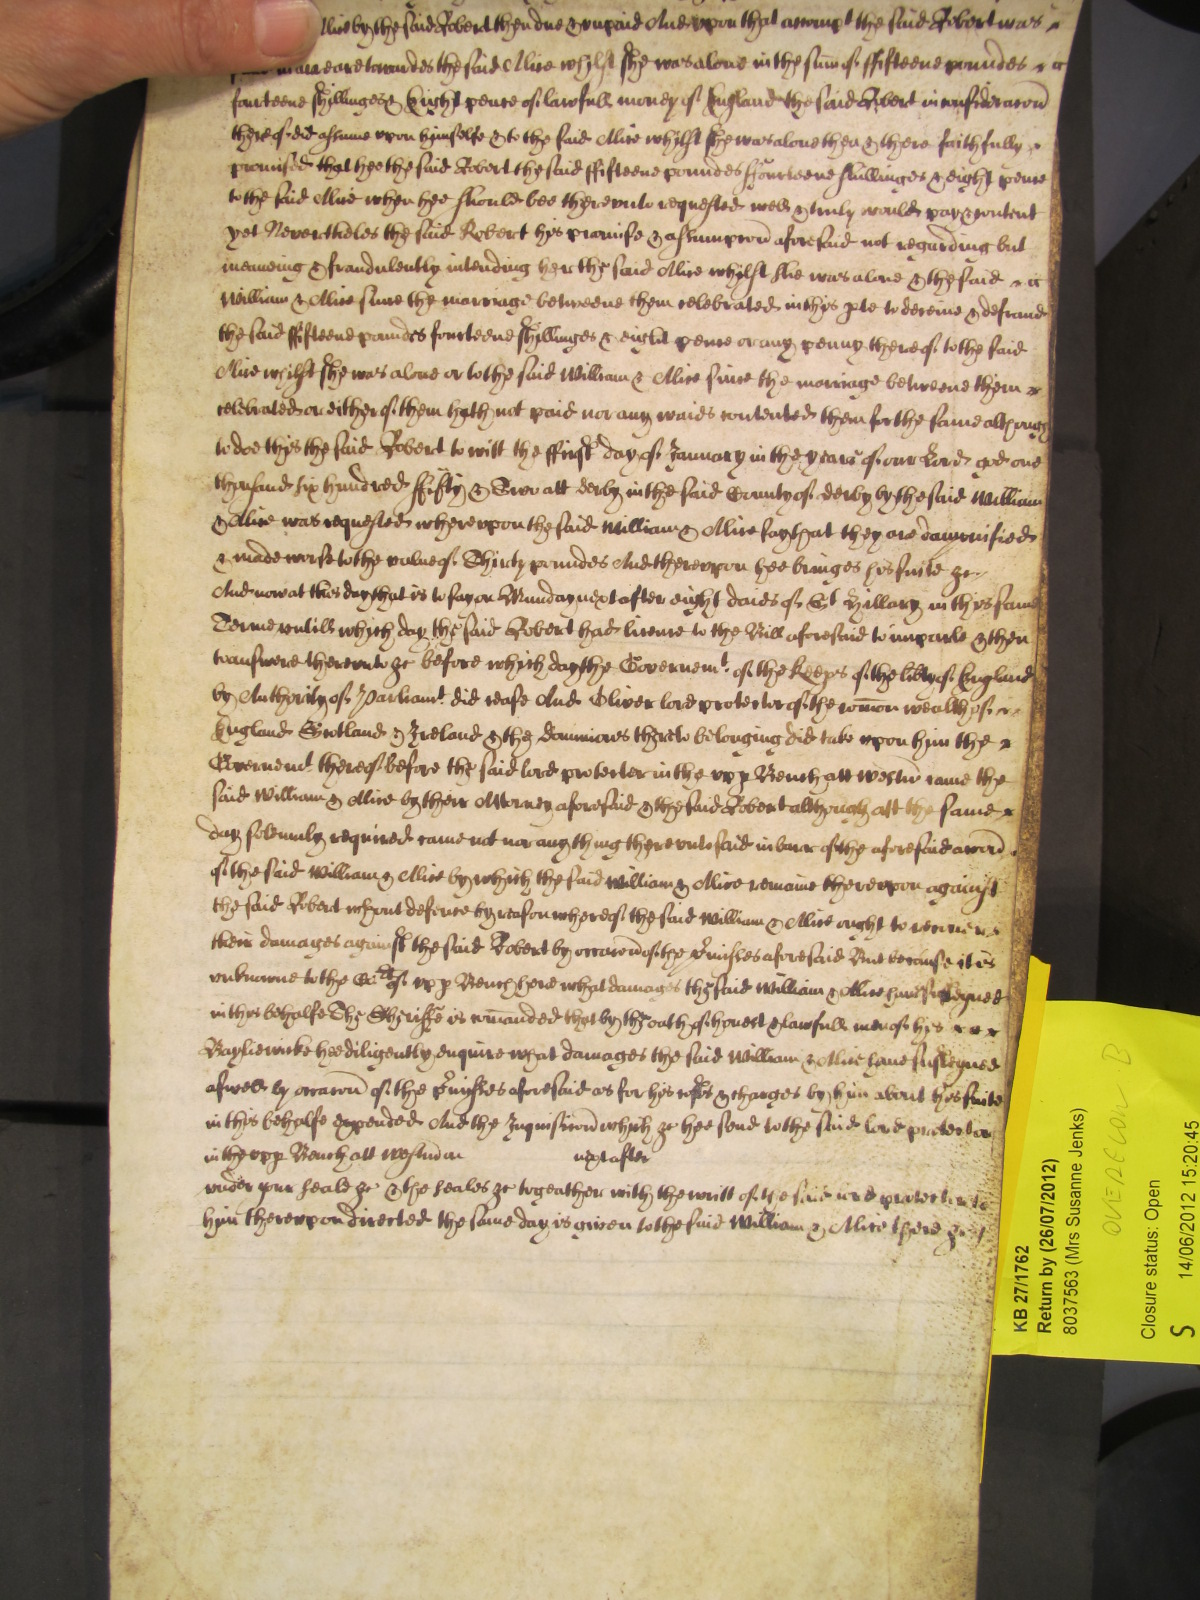 Alice by the said Robert then due & unpaid And upon that accompt the said Robert was
towardes the said Alice whilst she was alone in the sum̄ of ffifteene poundes
fourteene shillinges & Eight pence of lawfull money of England the said Robert in considerac̄on
thereof did assume upon himselfe & to the said Alice whilst she was alone then & there faithfully
promised that hee the said Robert the said ffifteene poundes ffourteene shillinges & eight pence
to the said Alice when hee should bee thereunto requested well & truly would pay & content
yet Nevertheles the said Robert his promise & assumpc̄on aforesaid not regarding but
intending & fraudulently intending her the said Alice whilst she was alone & the said
William & Alice since the marriage betweene them celebrated in this pte to deceive & defraud
the said ffifteene poundes fourteene shillinges & eight pence or any penny thereof to the said
Alice whilst she was alone or to the said William & Alice since the marriage betweene them
celebrated or either of them hath not paid nor any waies contented them for the same although
to doe this the said Robert to witt the ffirst day of January in the yeare of our Lord god one
thousand six hundred ffifty & Two att derby in the said County of derby by the said William
& Alice was requested whereupon the said William & Alice say that they are dampnified
& made worse to the value of Thirty poundes And thereupon hee bringes his suite &c
And now at this day that is to say on Munday next after eight daies of St Hillary in this same
Terme untill which day the said Robert had licence to the Bill aforesaid to imparle & then
to answere thereunto &c before which day the Governemt. of the keeps of the libty of England
by Authority of Parliamt. did cease And Oliver lord protector of the com̄on wealth of
England Scotland & Ireland & the dominions thereto belonging did take upon him the
Governemt. thereof before the said lord protector in the upp Bench att Westm̄ came the
said William & Alice by their Attorney aforesaid & the said Robert although att the same
day solemnly required came not nor any thing thereunto said in barr of the aforesaid acc̄on
of the said William & Alice by which the said William & Alice remaine thereupon against
the said Robert wthout defence by reason whereof the said William & Alice ought to recover
their damages against the said Robert by occac̄on of the pmisses aforesaid But because it is
unknowne to the Cort of upp Bench here what damages the said William & Alice have susteyned
in this behalfe The Sheriffe is com̄anded that by the oath of honest & lawfull men of his
Bayliewicke hee diligently enquire what damages the said William & Alice have susteyned
aswell by occac̄on of the pmisses aforesaid as for his costs & charges by him about his suite
in this behalfe expended And the Inquisic̄on which &c hee send to the said lord protector
in the upp Bench att Westm̄ on next after
under your seale &c & the seales &c togeather with the writt of the said lord protector to
him thereupon directed the same day is given to the said William & Alice there &c
KB 27/1762
Return by (26/07/2012)
8037563 (Mrs Susanne Jenks)
OVERCON B
Closure status: Open
S 14/06/2012 15:20:45